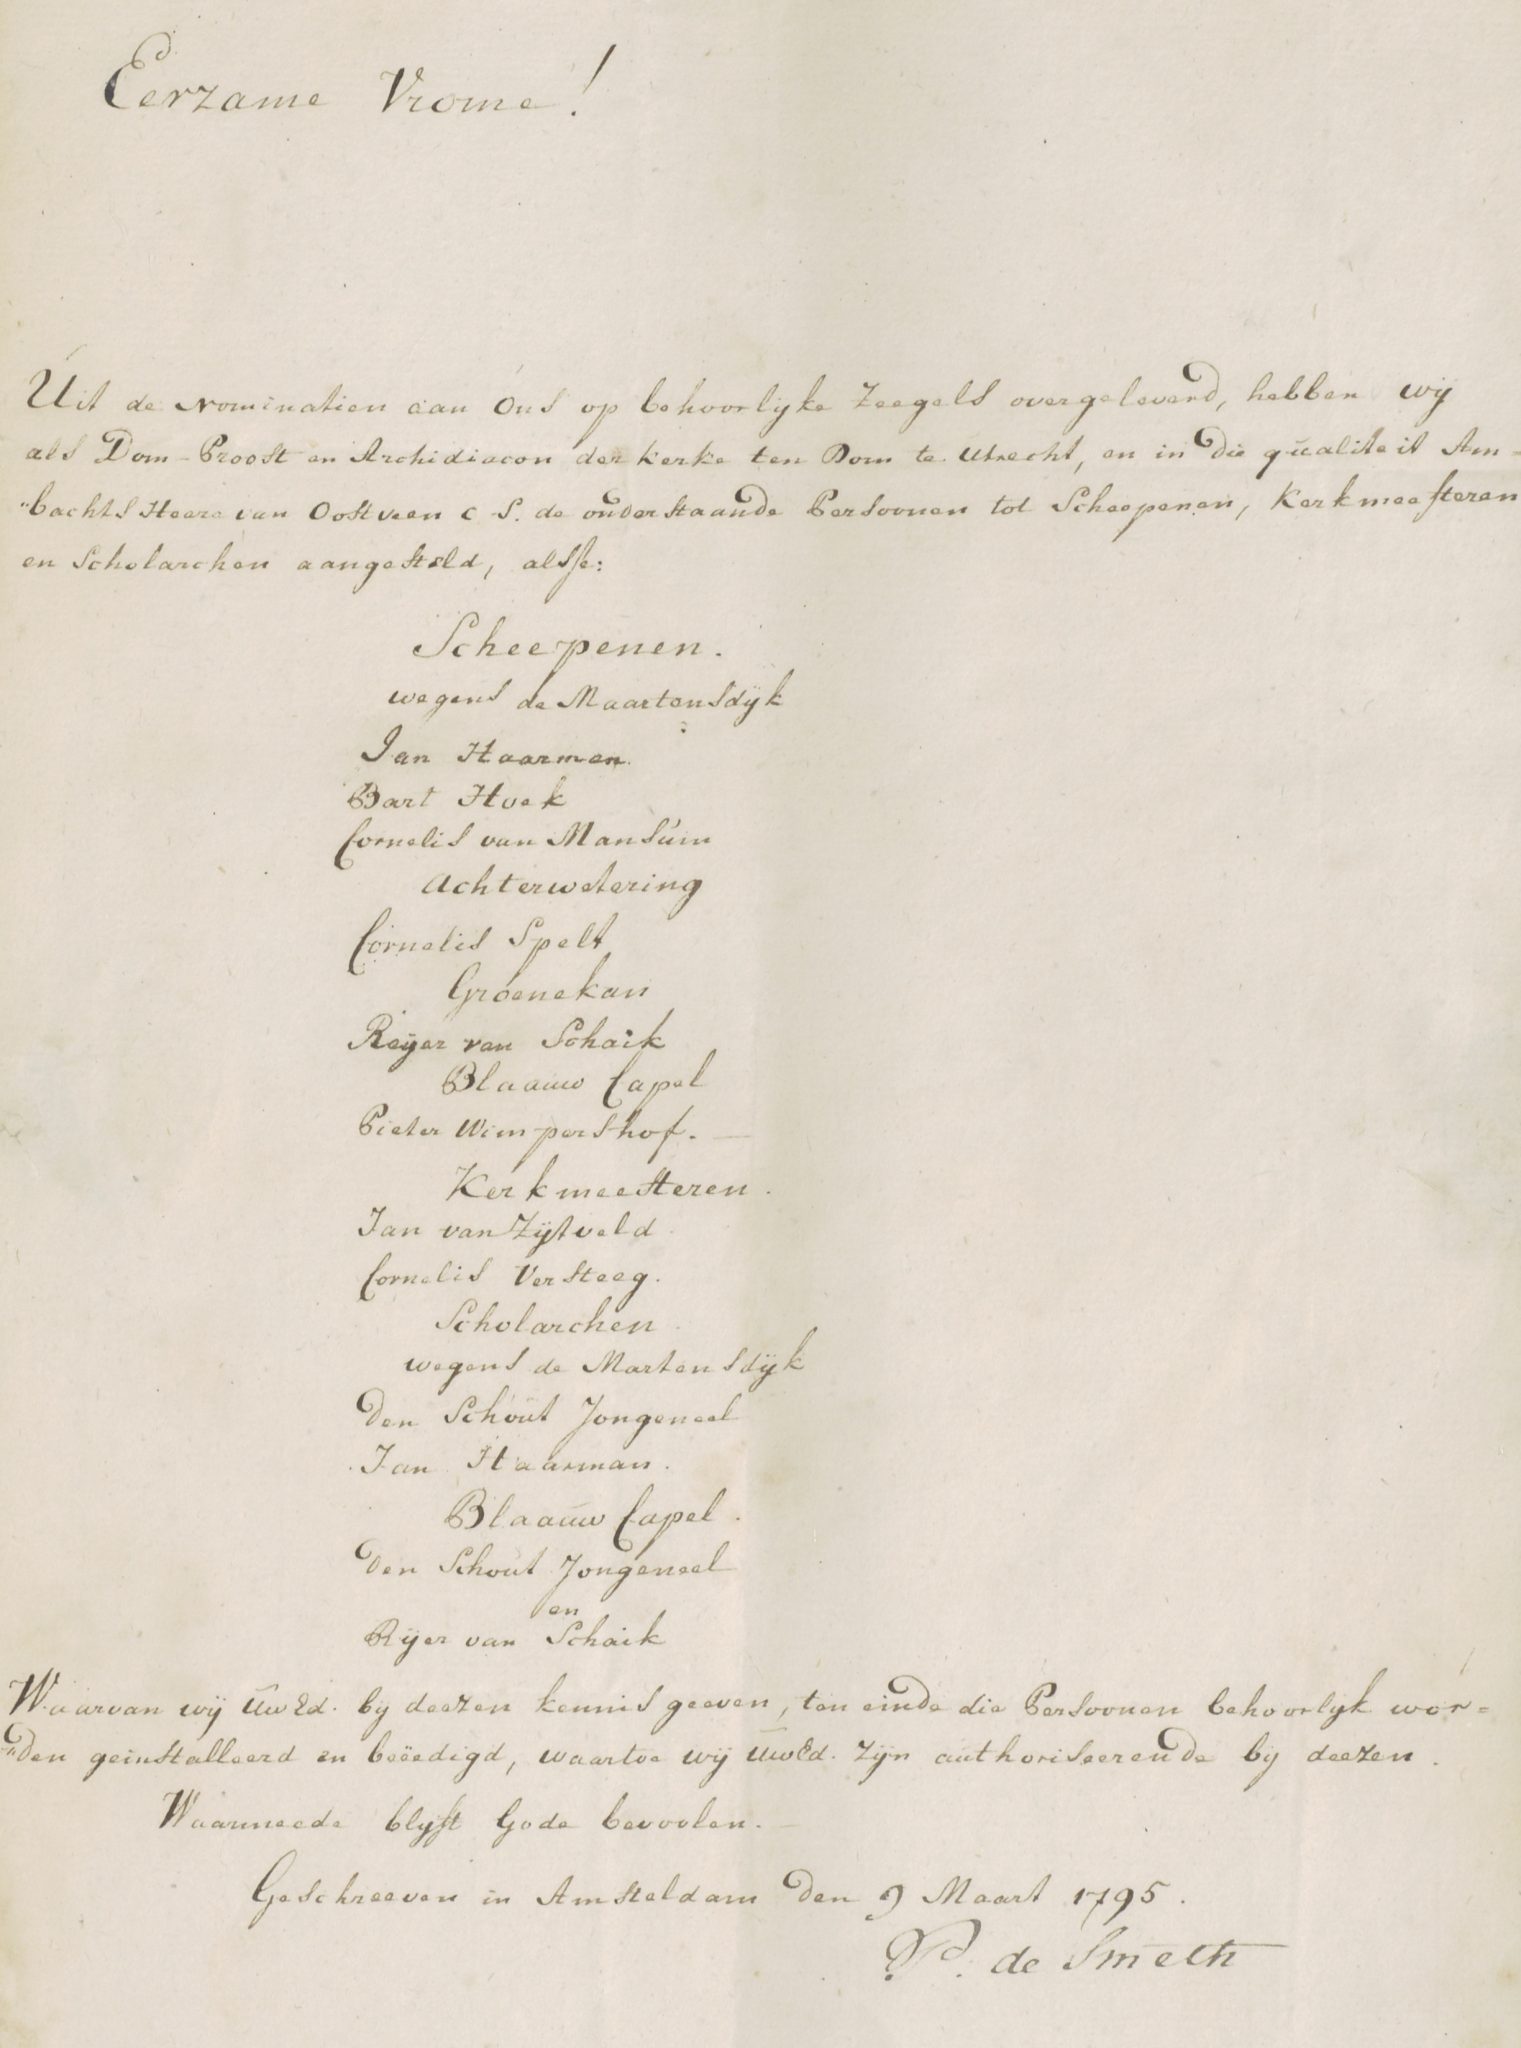 Eerzame Vrome!
Uit de Nominatien aan Ons op behoorlyke Zeegels overgeleverd, hebben wij
als Dom-Proost en Archidiacon der kerke ten Dom te Utrecht, en in die qualiteit Am=
"bachts Heere van Oostveen c. s. de onderstaande Persoonen tot Scheepenen, Kerkmeesteren
en Scholarchen aangesteld, alsse:
Scheepenen.
wegens de Maartensdÿk
Jan Haarman.
Bart Hoek
Cornelis van Mansúm
Achterwetering
Cornelis Spelt
Groenekan
Reÿer van Schaik
Blaauw Capel
Pieter Wimpershof. —
Kerkmeesteren.
Jan van Zÿtveld.
Cornelis Versteeg.
Scholarchen.
wegens de Martensdÿk
den Schout Jongeneel
Jan Haarman.
Blaauw Capel.
den Schout Jongeneel
en
Rÿer van Schaik
Waarvan wij UwEd. by deezen kennis geeven, ten einde die Persoonen behoorlijk wor=
"den geinstalleerd en beëedigd, waartoe wij UwEd. zijn authoriseerende bij deezen.
Waarmeede blyft Gode bevoolen. —
Geschreeven in Amsteldam den 9 Maart 1795.
P. de Smeth